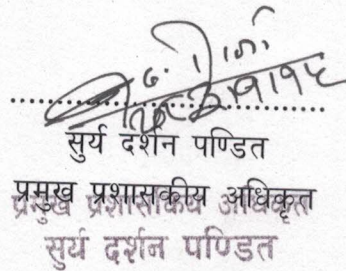 सुर्य दर्शन पण्डित
प्रमुख प्रशासकीय अधिकृत
प्रमुख प्रशासकिय अधिकृत
सुर्य दर्शन पण्डित